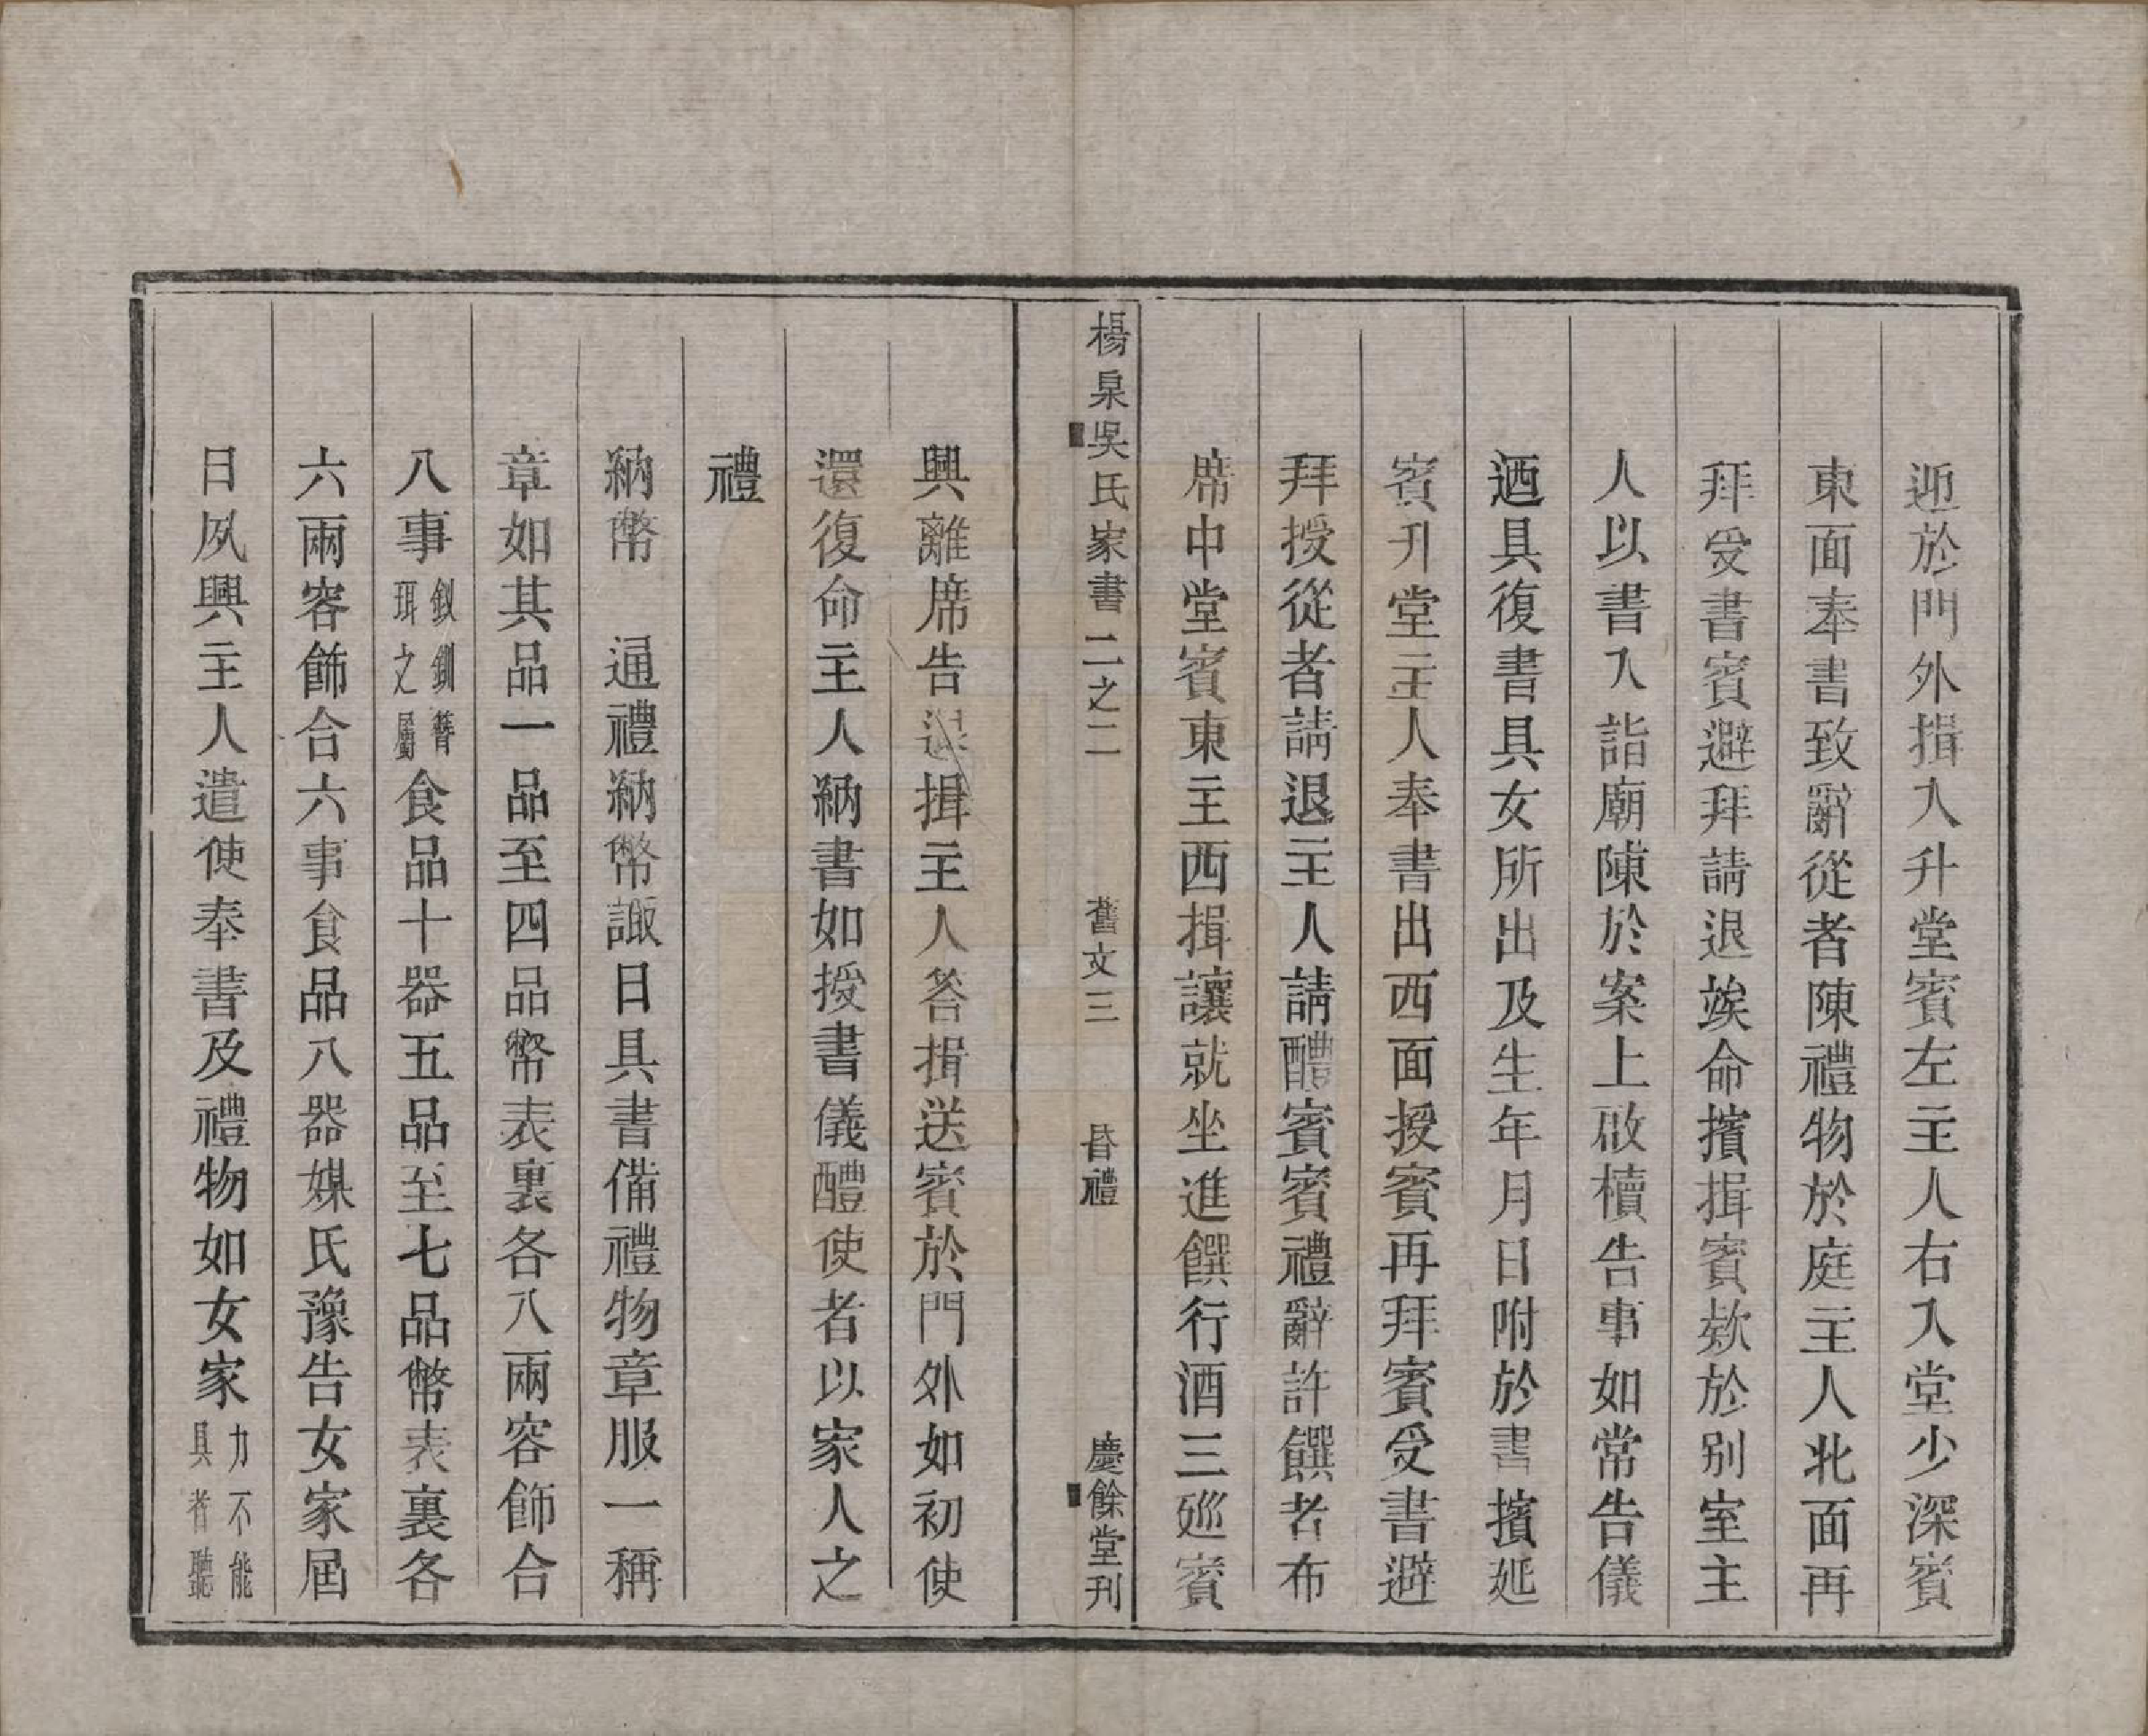 迎於門外揖入升堂賓左主人右入堂少深賓
東面奉書致辭從者陳禮物於庭主人北面再
拜受書賓避拜請退竢命擯揖賓欵於別室主
人以書入詣廟陳於案上啟櫝告事如常告儀
迺具復書具女所出及生年月日附於書擯延
賓升堂主人奉書出西面授賓再拜賓受書避
拜授從者請退主人請醴賓賓禮辭許饌者布
席中堂賓東主西揖讓就坐進饌行酒三廵賓
楊泉吳氏家書二之二　舊文三　昏禮　慶餘堂刊
興離席告退揖主人答揖送賓於門外如初使
還復命主人納書如授書儀醴使者以家人之
禮
納幣　通禮納幣諏日具書備禮物章服一稱
章如其品一品至四品幣表裏各八兩容飾合
八事釵釧簪珥之屬食品十器五品至七品幣表裏各
六兩容飾合六事食品八器媒氏豫告女家屆
日夙興主人遣使奉書及禮物如女家力不能具者聽